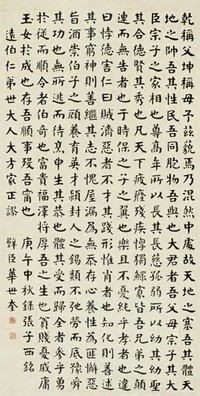 乾稱父坤稱母予茲藐焉乃混然中處故天地之塞吾其體天
地之帥吾其性民吾同胞物吾與也大君者吾父母宗子其大
臣宗子之家相也尊高年所以長其長慈孤弱所以幼其幼聖
其合德賢其秀也凡天下疲癃殘疾惸獨鰥寡皆吾兄弟之顛
連而無告者也于時保之子之翼也樂且不憂純乎孝者也違
曰悖德害仁曰賊濟惡者不才其踐形惟肖者也知化則善述
其事窮神則善繼其志不愧屋漏為無忝存心養性為匪懈惡
旨酒崇伯子之顧養育英才穎封人之錫類不弛勞而底豫舜
其功也無所逃而待烹申生其恭也體其受而歸全者參乎勇
於從而順令者伯奇也富貴福澤將厚吾之生也貧賤憂戚庸
玉女於成也存吾順事歿吾寧也 庚午中秋錄張子西銘
遠伯仁弟世大人大方家正謬 弼臣華世奎